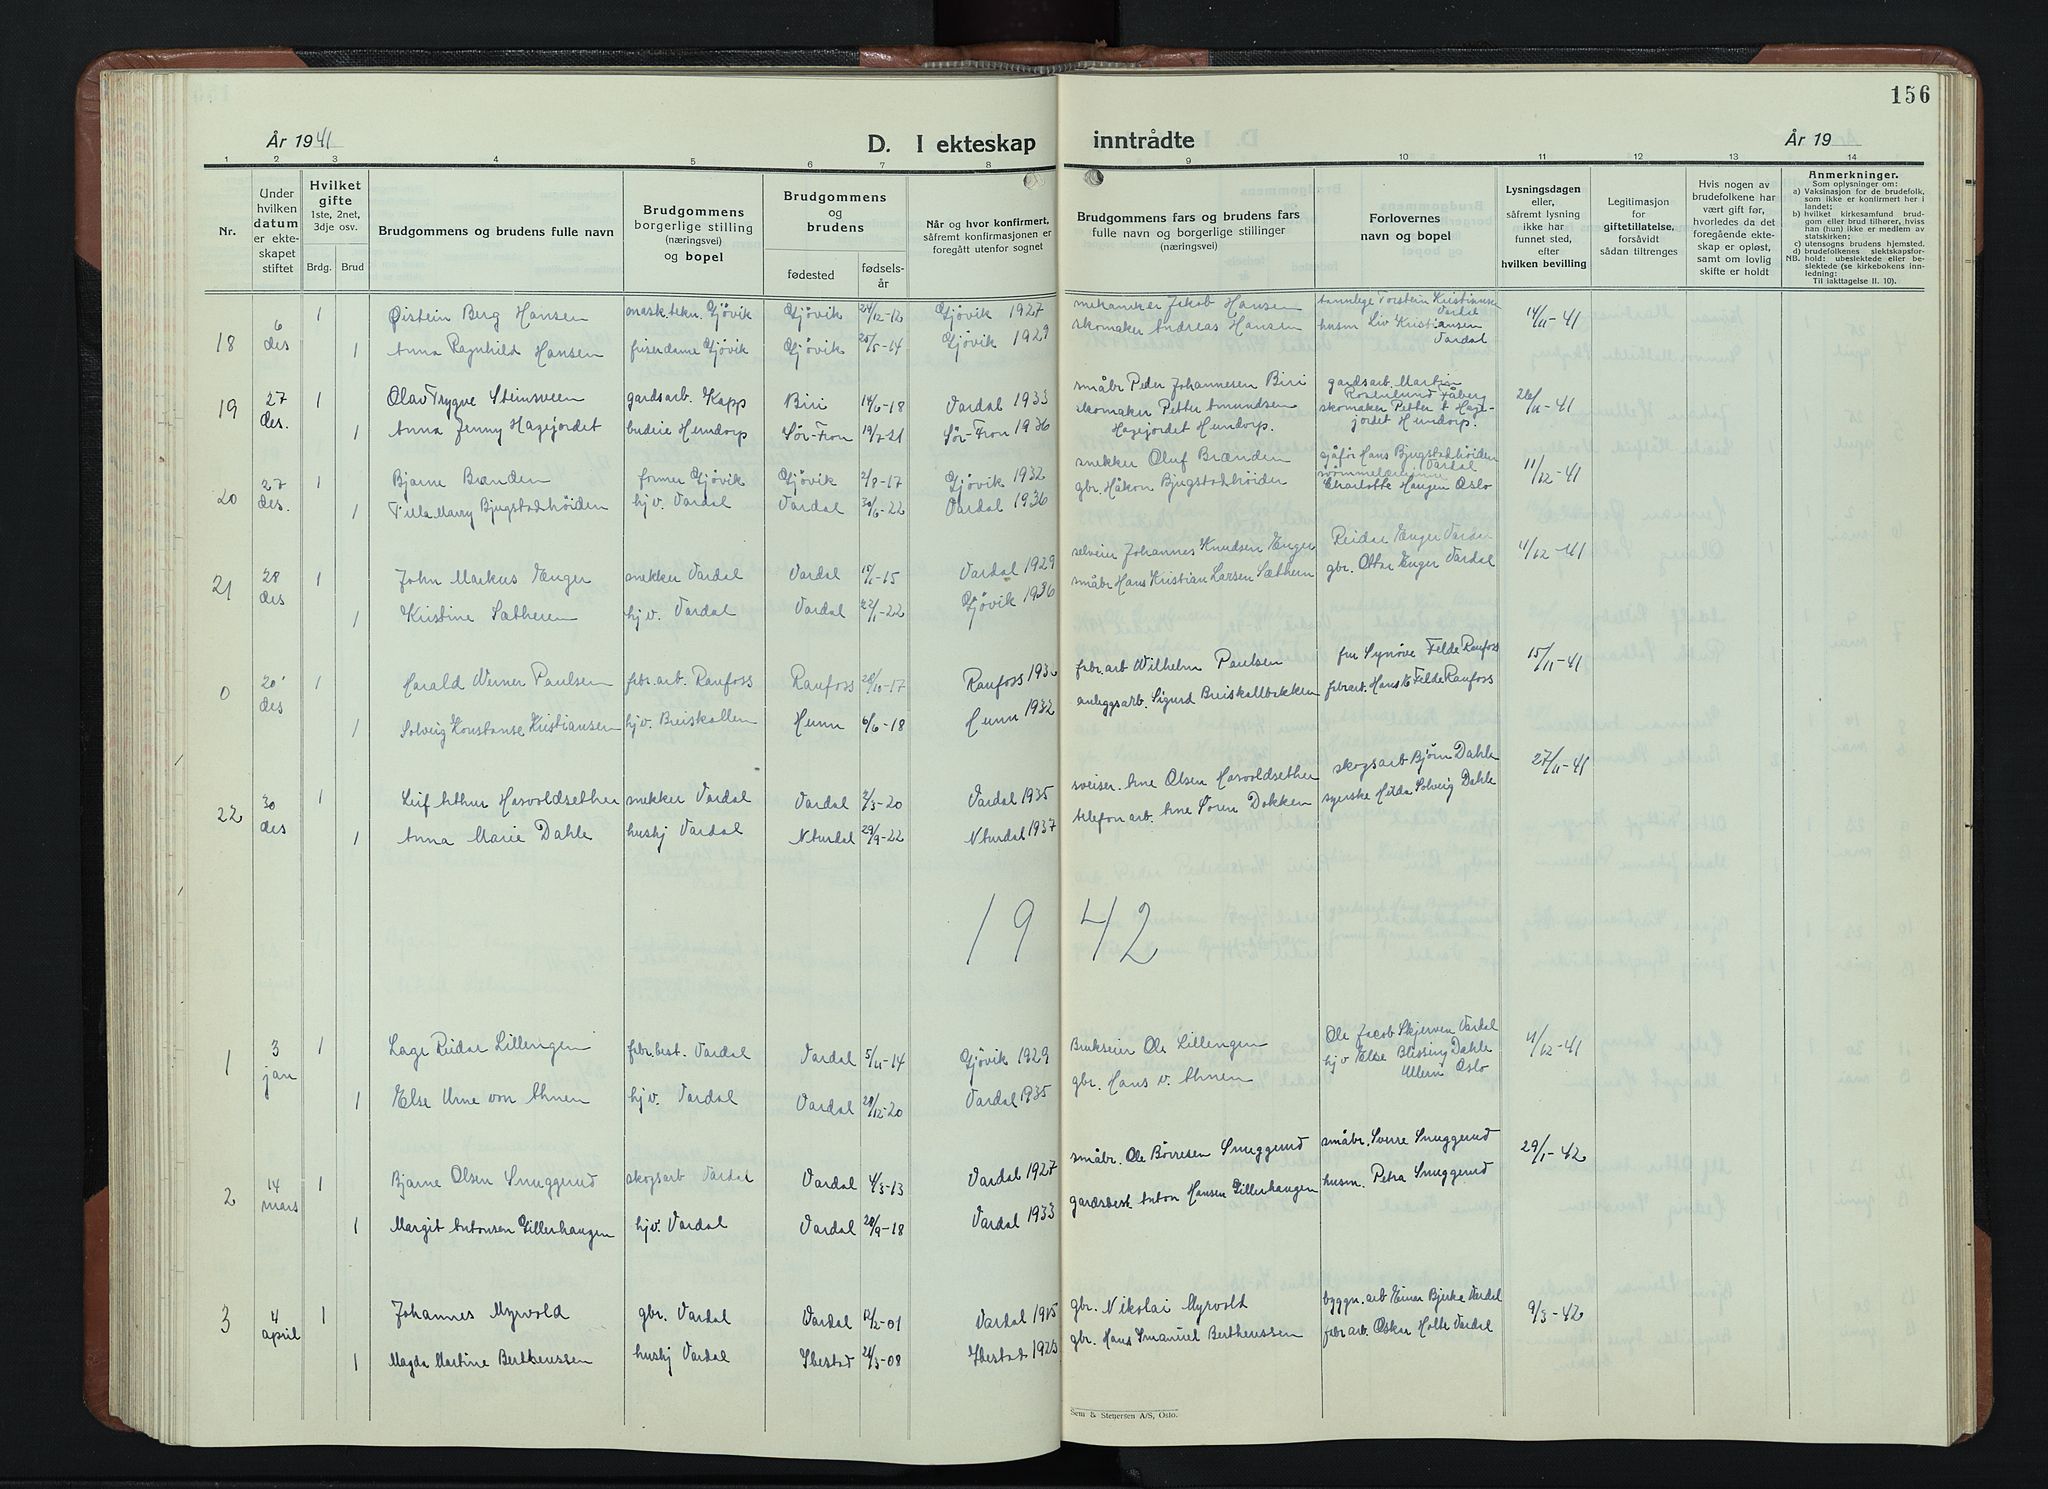 156
År 1941 D. I ekteskap inntrådte År 19
1 2 3 4 5 6 7 8 9 10 11 12 13 14
Nr.
Under hvilken datum er ekteskapet stiftet
Hvilket gifte 1ste, 2net, 3dje osv.
Brdg. Brud
Brudgommens og brudens fulle navn
Brudgommens borgerlige stilling (næringsvei) og bopel
Brudgommens og brudens
fødested fødselsår
Når og hvor konfirmert, såfremt konfirmasjonen er foregått utenfor sognet
Brudgommens fars og brudens fars fulle navn og borgerlige stillinger (næringsvei)
Forlovernes navn og bopel
Lysningsdagen eller, såfremt lysning ikke har funnet sted, efter hvilken bevilling
Legitimasjon for giftetillatelse, forsåvidt sådan tiltrenges
Hvis nogen av brudefolkene har vært gift før, hvorledes da det foregående ekteskap er opløst, samt om lovlig skifte er holdt
Anmerkninger.
Som oplysninger om:
a) Vaksinasjon for de brudefolk, som ikke er konfirmert her i landet;
b) hvilket kirkesamfund brudgom eller brud tilhører, hviss han (hun) ikke er medlem av statskirken;
c) utensogns brudens hjemsted.
d) brudefolkenes slektskapsforhold: ubeslektede eller beslektede (se kirkebokens innledning:
NB. Til iakttagelse II. 10).
18 6 des 1 Øistein Berg Hansen mask.tekn. Gjøvik Gjøvik 24/12-12 Gjøvik 1927 mekaniker Jakob Hansen tannlege Torstein Kristiansen Vardal 14/11-41
1 Anna Ragnhild Hansen friserdame Gjøvik Gjøvik 25/5-14 Gjøvik 1929 skomaker Andreas Hansen husm Liv Kristiansen Vardal
19 27 des. 1 Olav Trygve Steinsveen gardsarb. Kapp Biri 14/6-18 Vardal 1933 småbr Peder Johannesen Biri gardsarb. Martin Rosenlund Fåberg 26/11-41
1 Anna Jenny Hagejordet budeie Hundorp Sør-Fron 19/2-21 Sør-Fron 1936 skomaker Petter Amundsen Hagejordet Hundorp. skomaker Petter A Hagejordet Hundorp.
20 27 des. 1 Bjarne Brænden former Gjøvik Gjøvik 2/8-17 Gjøvik 1932 snekker Oluf Brænden sjåfør Hans Bjugstadhöiden Vardal 11/12-41
1 Tilla Marry Bjugstadhöiden hjv. Vardal Vardal 30/6-22 Vardal 1936 gbr. Håkon Bjugstadhöiden Charlotte Haugen Oslo
21 28 des 1 John Markus Enger snekker Vardal Vardal 15/1-15 Vardal 1929 selveier Johannes Knudsen Enger Reidar Enger Vardal 4/12-41
1 Kristine Sætheren hjv. Vardal Vardal 22/1-22 Gjøvik 1936 småbr Hans Kristian Larsen Sæthern gbr. Ottar Enger Vardal
0 20 des 1 Harald Werner Paulsen fabr.arb. Raufoss Raufoss 28/10-17 Raufoss 1932 fabr.arb Wilhelm Paulsen fru Synøve Felde Raufoss 15/11-41
1 Solveig Konstanse Kristiansen hjv. Breiskallen Hunn 6/6-18 Hunn 1932 anleggsarb. Sigurd Breiskallbakken fabr.arb. Hans K Felde Raufoss
22 30 des 1 Leif Arthur Harvoldsether snekker Vardal Vardal 2/3-20 Vardal 1935 sveiser Arne Olsen Harvoldsether skogsarb Bjørn Dahle 27/11-41
1 Anna Marie Dahle hushj Vardal N Aurdal 29/9-22 N Aurdal 1937 telefon arb. Arne Sören Dokken syerske Hilda Solveig Dahle
1942
1 3 jan 1 Lage Reidar Lillengen fabr.best. Vardal Vardal 5/11-14 Gjøvik 1929 Brukseier Ole Lillengen Ole Jacob Skjerven Vardal 4/12-41
1 Else Urne von Ahnen hjv. Vardal Vardal 28/12-20 Vardal 1935 gbr. Hans v. Ahnen hjv Else Blissing Dahle Ullern Oslo
2 14 mars 1 Bjarne Olsen Snuggerud skogsarb Vardal Vardal 4/3-13 Vardal 1927 småbr. Ole Börresen Snuggerud småbr. Sverre Snuggerud 29/1-42
1 Margit Antonsen Gillerhaugen hjv. Vardal Vardal 28/9-18 Vardal 1933 gardsbest. Anton Hansen Gillerhaugen husm. Petra Snuggerud
3 4 april 1 Johannes Myrvold gbr. Vardal Vardal 12/2-01 Vardal 1915 gbr. Nikolai Myrvold byggn. arb Einar Bjerke Vardal 9/3-42
1 Magda Martine Bertheussen hushj Vardal Ibestad 24/3-08 Ibestad 1923 gbr. Hans Emanuel Bertheussen fabr arb. Oskar Holte Vardal
Sem & Stenersen A/S, Oslo.